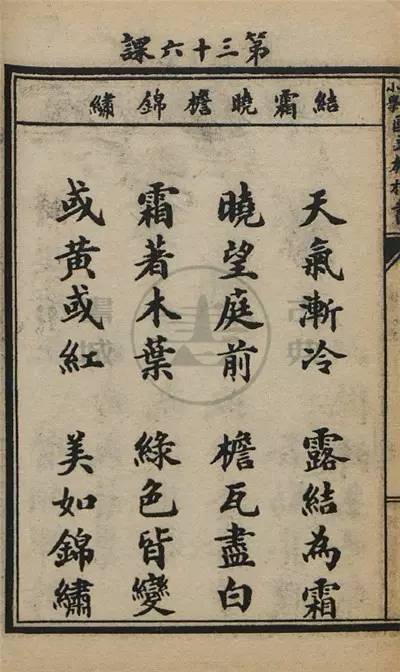 第三十六課
結霜曉檐錦繡
天氣漸冷　露結為霜
曉望庭前　檐瓦盡白
霜著木葉　綠色皆變
或黃或紅　美如錦繡